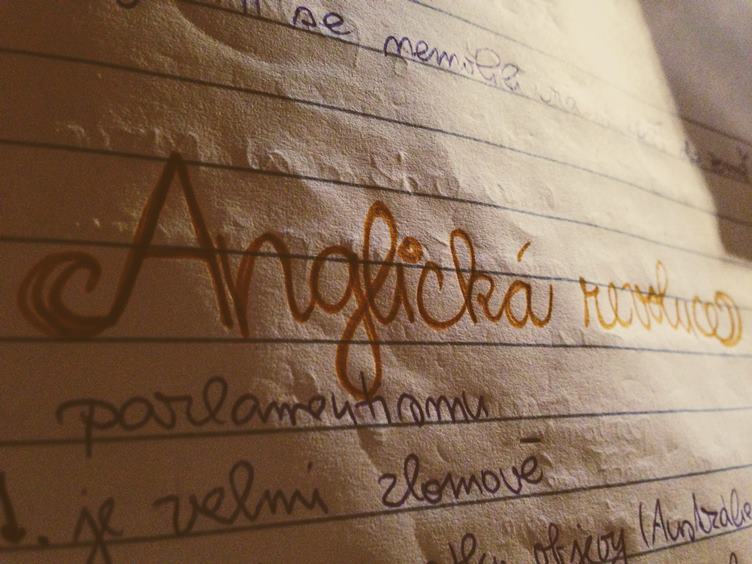 se nemohli
Anglická revoluce
parlamentismu
1. je velmi zlomové
objevy (Austrálie